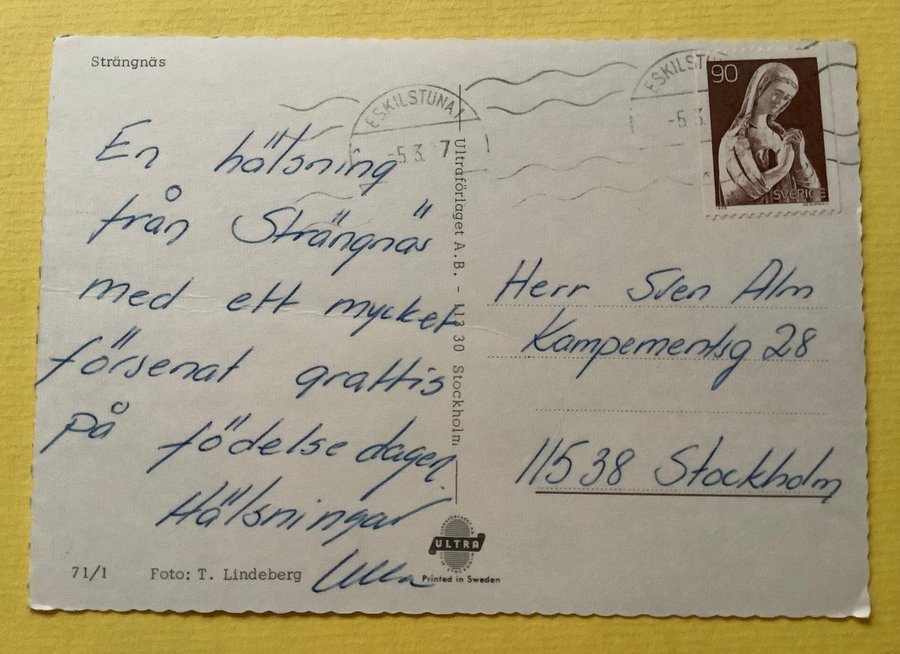 Strängnäs
En hälsning
från Strängnäs
med ett mycket
försenat grattis
på födelsedagen.
Hälsningar
Ulla
71/1 Foto: T. Lindeberg
Ultraförlaget A.B. - Stockholm
ULTRA
Printed in Sweden
ESKILSTUNA 1
-5.3. 7
ESKILSTU
-5.3.
90
SVERIGE
Herr Sven Alm
Kampementsg 28
11538 Stockholm